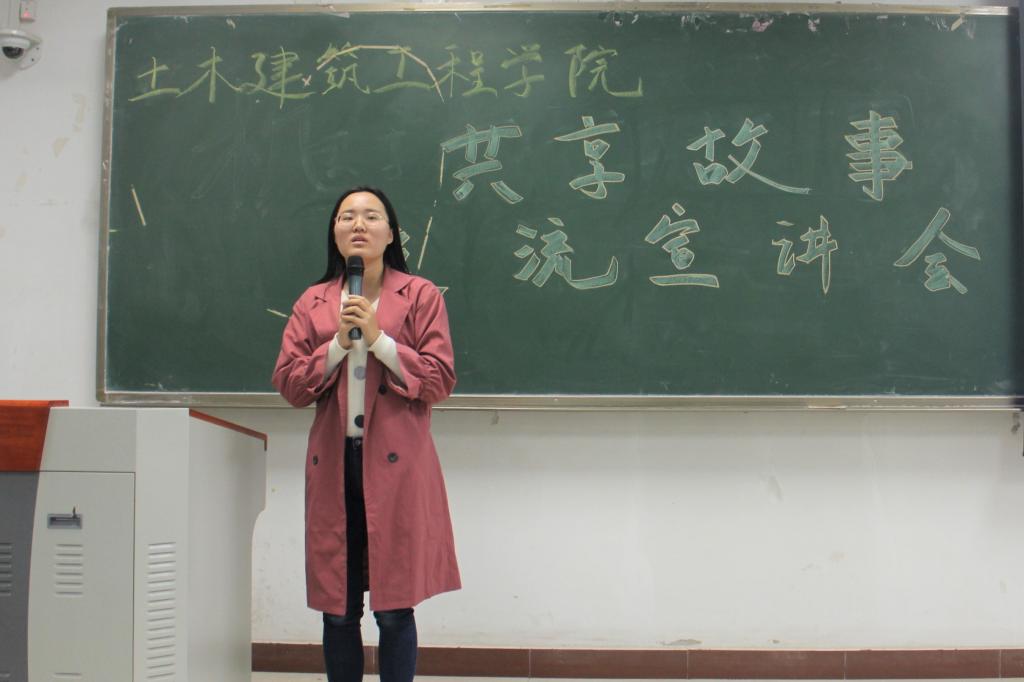 土木建筑工程学院
共享故事
流宣讲会